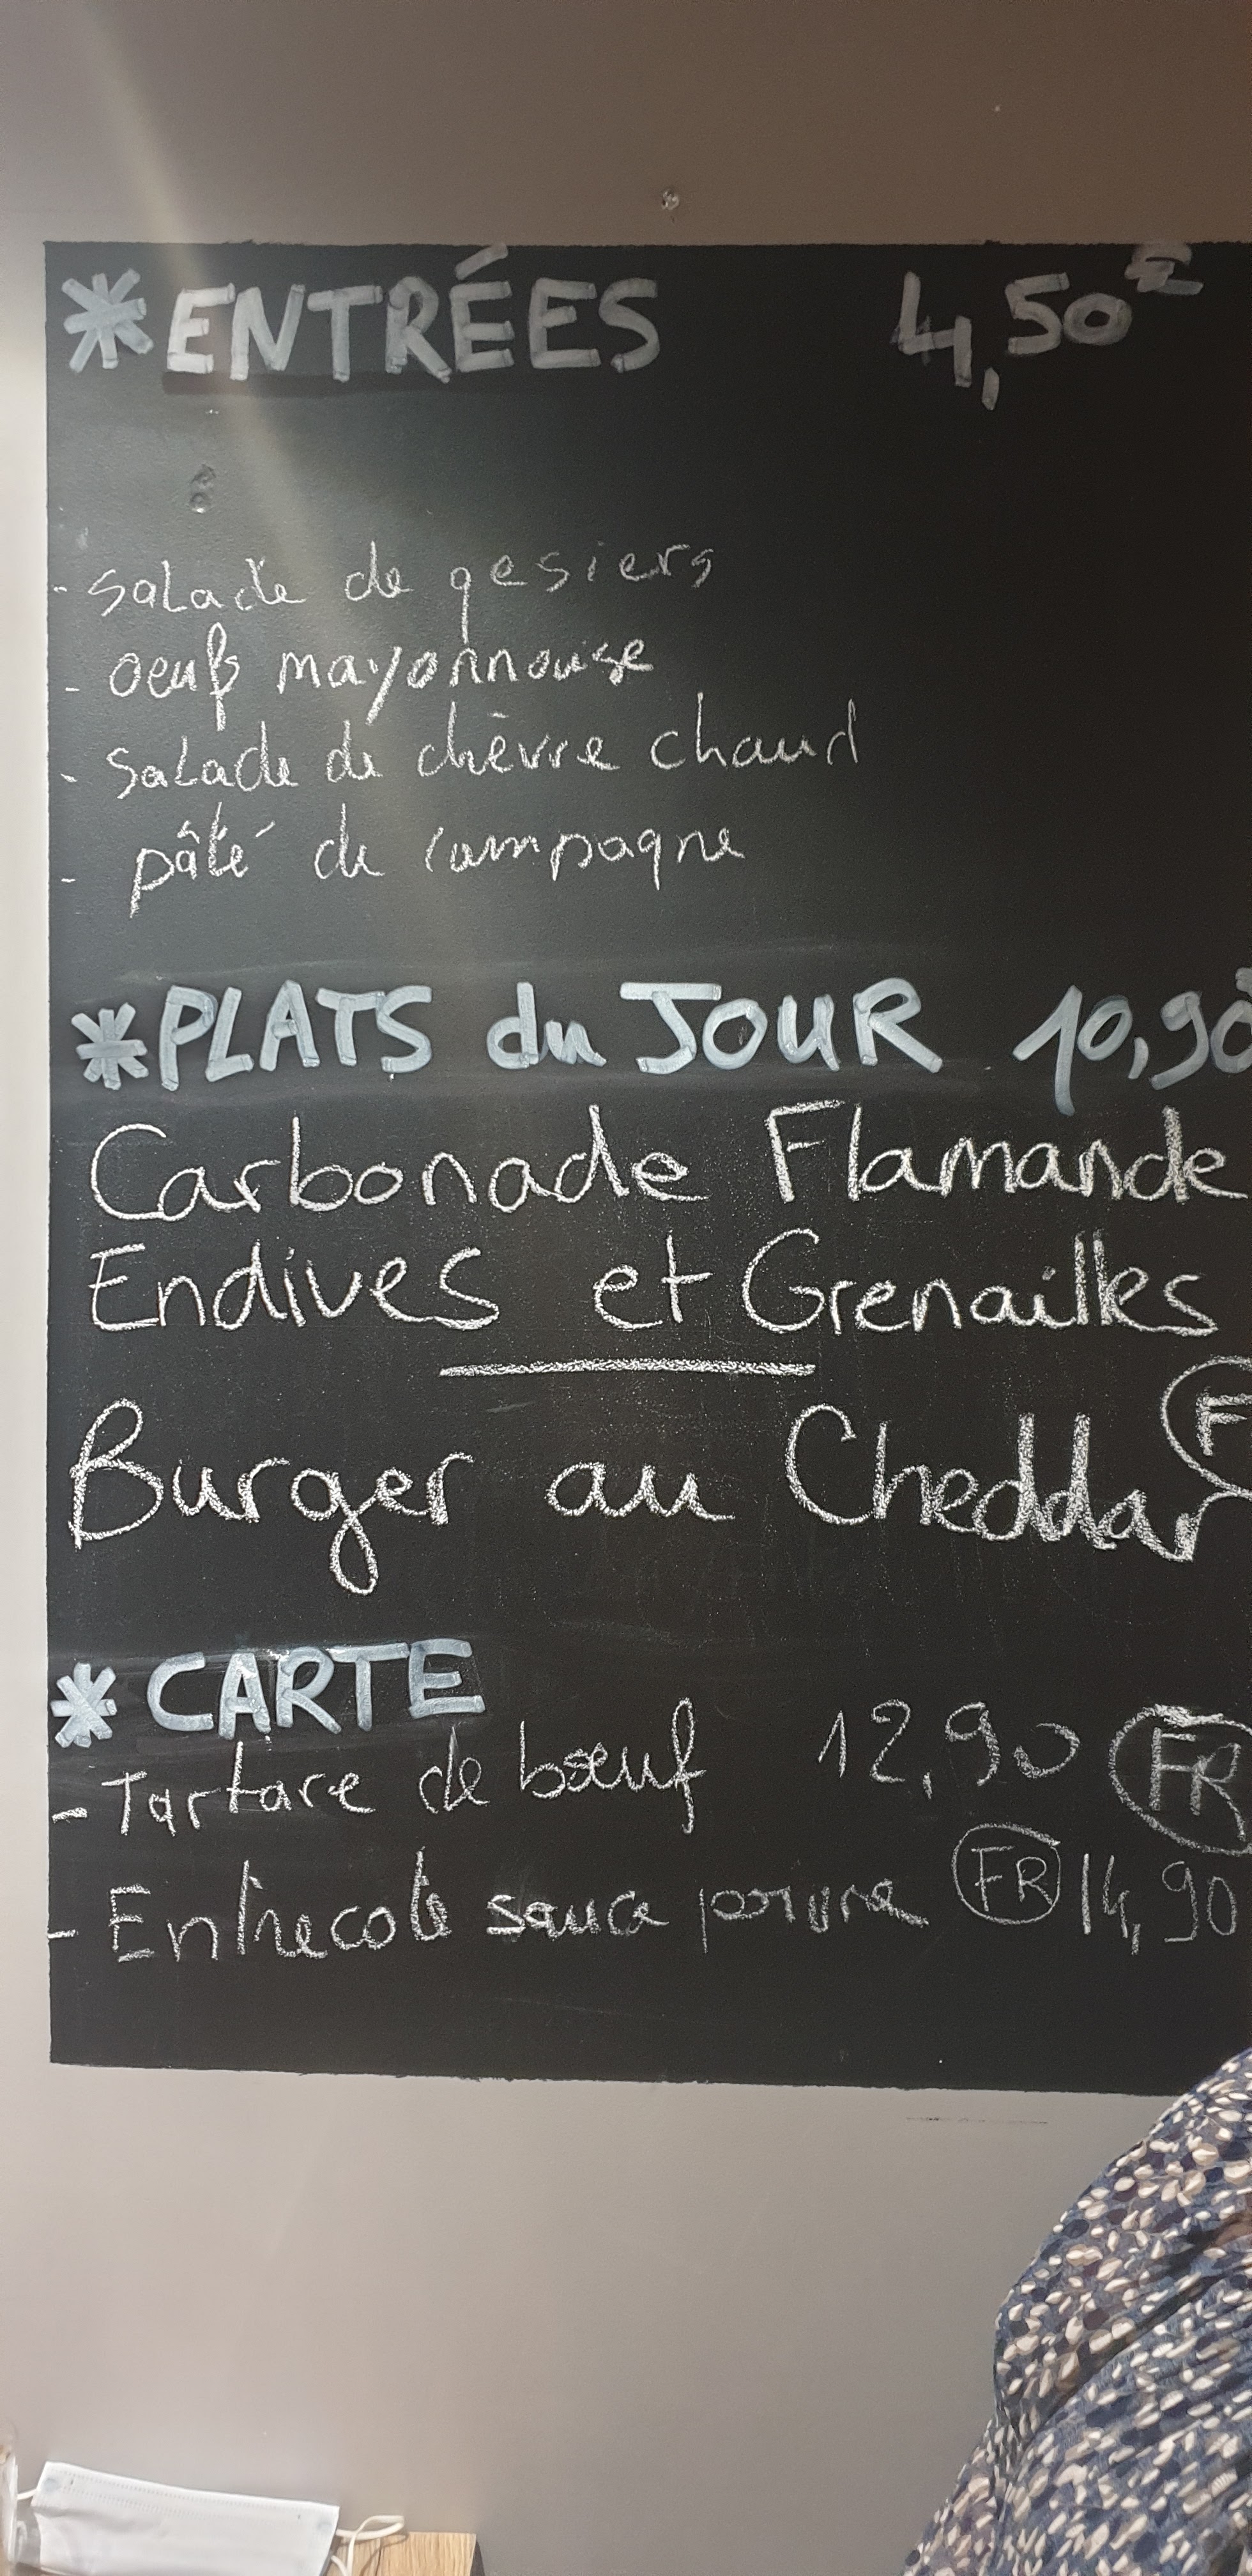 * ENTRÉES 4,50€
- salade de gesiers
- oeufs mayonnaise
- salade de chèvre chaud
- pâté de campagne
* PLATS du JOUR 10,90
Carbonade Flamande
Endives et Grenailles
F
Burger au Cheddar
* CARTE
- Tartare de bœuf 12,90 FR
- Entrecote sauce poivre FR 14,90